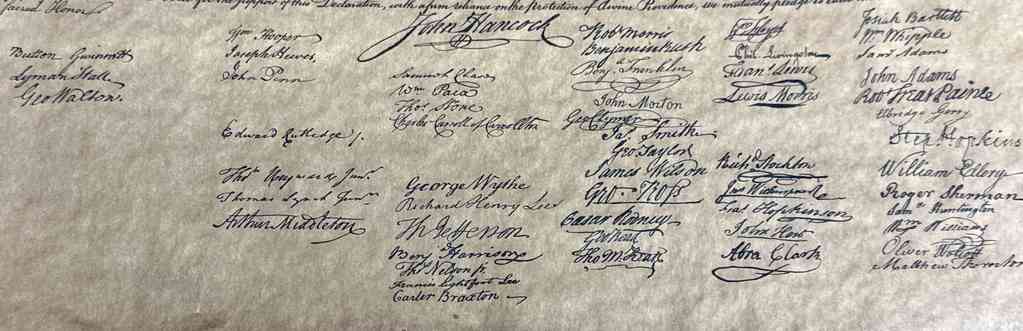 for the support of this Declaration, with a firm reliance on the protection of divine Providence, we mutually pledge to
sacred Honor
John Hancock
Button Gwinnett
Lyman Hall
Geo Walton.
Wm Hooper
Joseph Hewes,
John Penn
Edward Rutledge /.
Thos Heyward Junr.
Thomas Lynch Junr.
Arthur Middleton
Samuel Chase
Wm Paca
Thos Stone
Charles Carroll of Carrollton
George Wythe
Richard Henry Lee
Th Jefferson
Benj Harrison
Thos Nelson jr.
Francis Lightfoot Lee
Carter Braxton
Robt Morris
Benjamin Rush
Benj. Franklin
John Morton
Geo Clymer
Jas. Smith
Geo. Taylor
James Wilson
Geo. Ross
Caesar Rodney
Geo Read
Tho M:Kean
Phil. Livingston
Frans. Lewis
Lewis Morris
Richd. Stockton
Jno Witherspoon
Fras. Hopkinson
John Hart
Abra Clark
Josiah Bartlett
Wm Whipple
Saml Adams
John Adams
Robt Treat Paine
Elbridge Gerry
Step. Hopkins
William Ellery
Roger Sherman
Saml Huntington
Wm Williams
Oliver Wolcott
Matthew Thornton